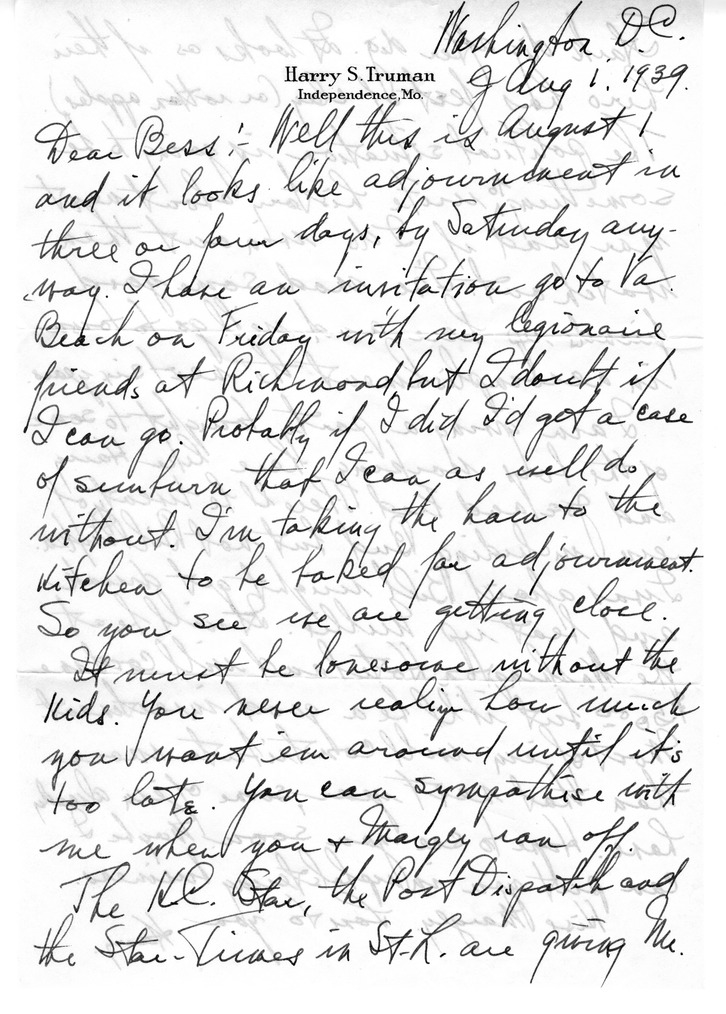 Washington, D.C.
Harry S. Truman
Aug 1, 1939.
Independence, Mo.
Dear Bess:- Well this is August 1
and it looks like adjournment in
three or four days, by Saturday any-
way. I have an invitation go to Va.
Beach on Friday with my legionaire
friends at Richmond but I doubt if
I can go. Probably if I did I'd get a case
of sunburn that I can as well do
without. I'm taking the ham to the
kitchen to be baked for adjournment.
So you see we are getting close.
It must be lonesome without the
kids. You never realize how much
you want 'em around until it's
too late. You can sympathise with
me when you + Margey ran off.
The K.C. Star, the Post Dispatch and
the Star-Times in St. L. are giving Mr.